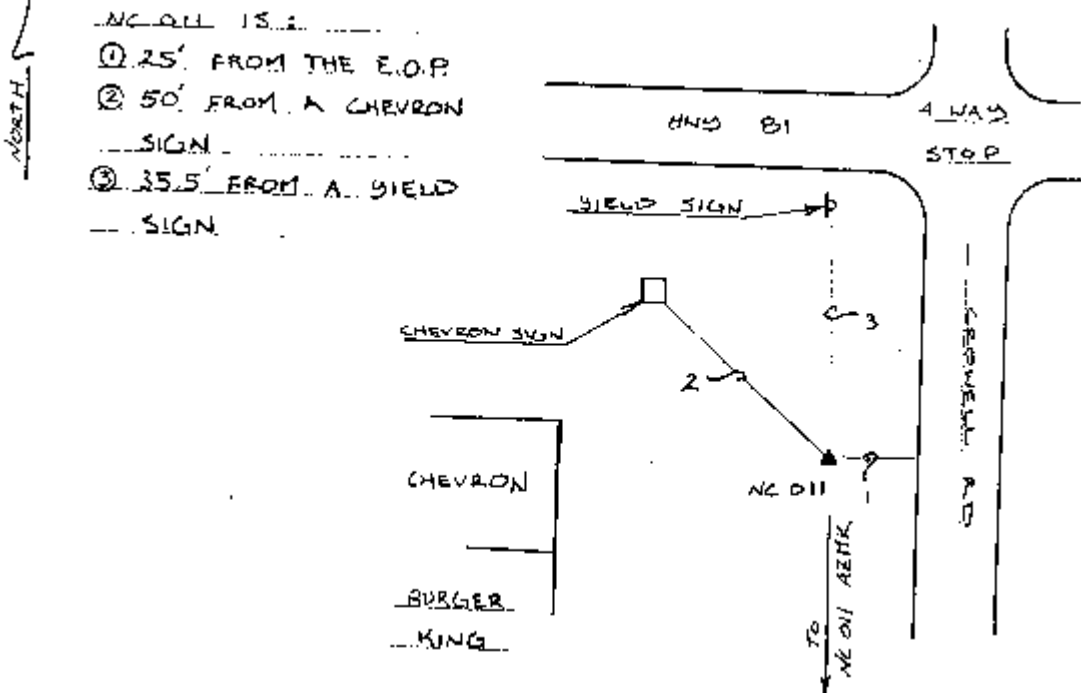 NC 011 IS:
① 25' FROM THE E.O.P.
② 50' FROM A CHEVRON
SIGN
③ 35.5' FROM A YIELD
SIGN
NORTH
HWY 81
4 WAY
STOP
YIELD SIGN
3
CHEVRON SIGN
2
CROWELL RD
CHEVRON
NC 011
1
BURGER
KING
TO
NC 011 AZMK